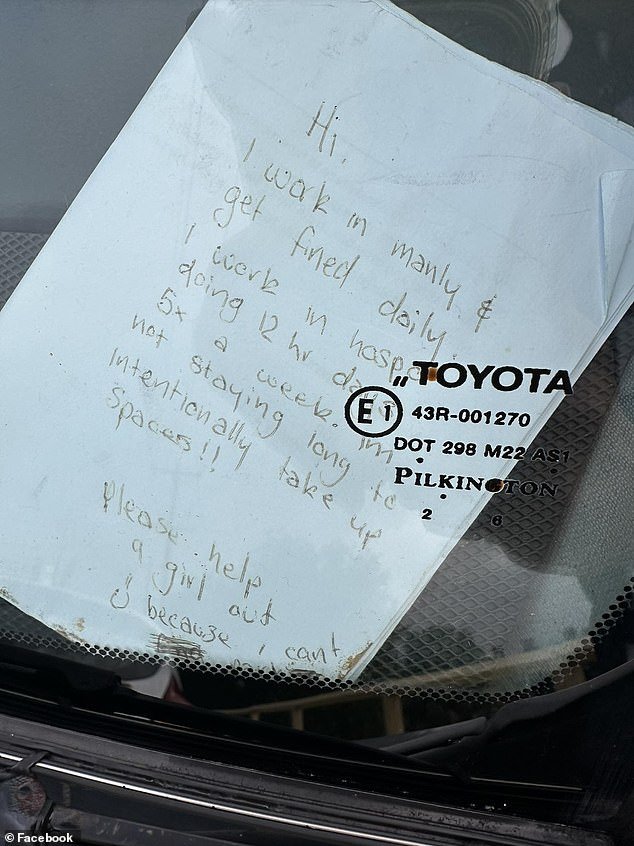 Hi,
I work in manly &
get fined daily.
I work in hospo
doing 12 hr days
5x a week. Im
not staying long to
intentionally take up
spaces!!
Please help
a girl out
because i cant
"TOYOTA
E1 43R-001270
DOT 298 M22 AS1
PILKINGTON
2 6
© Facebook